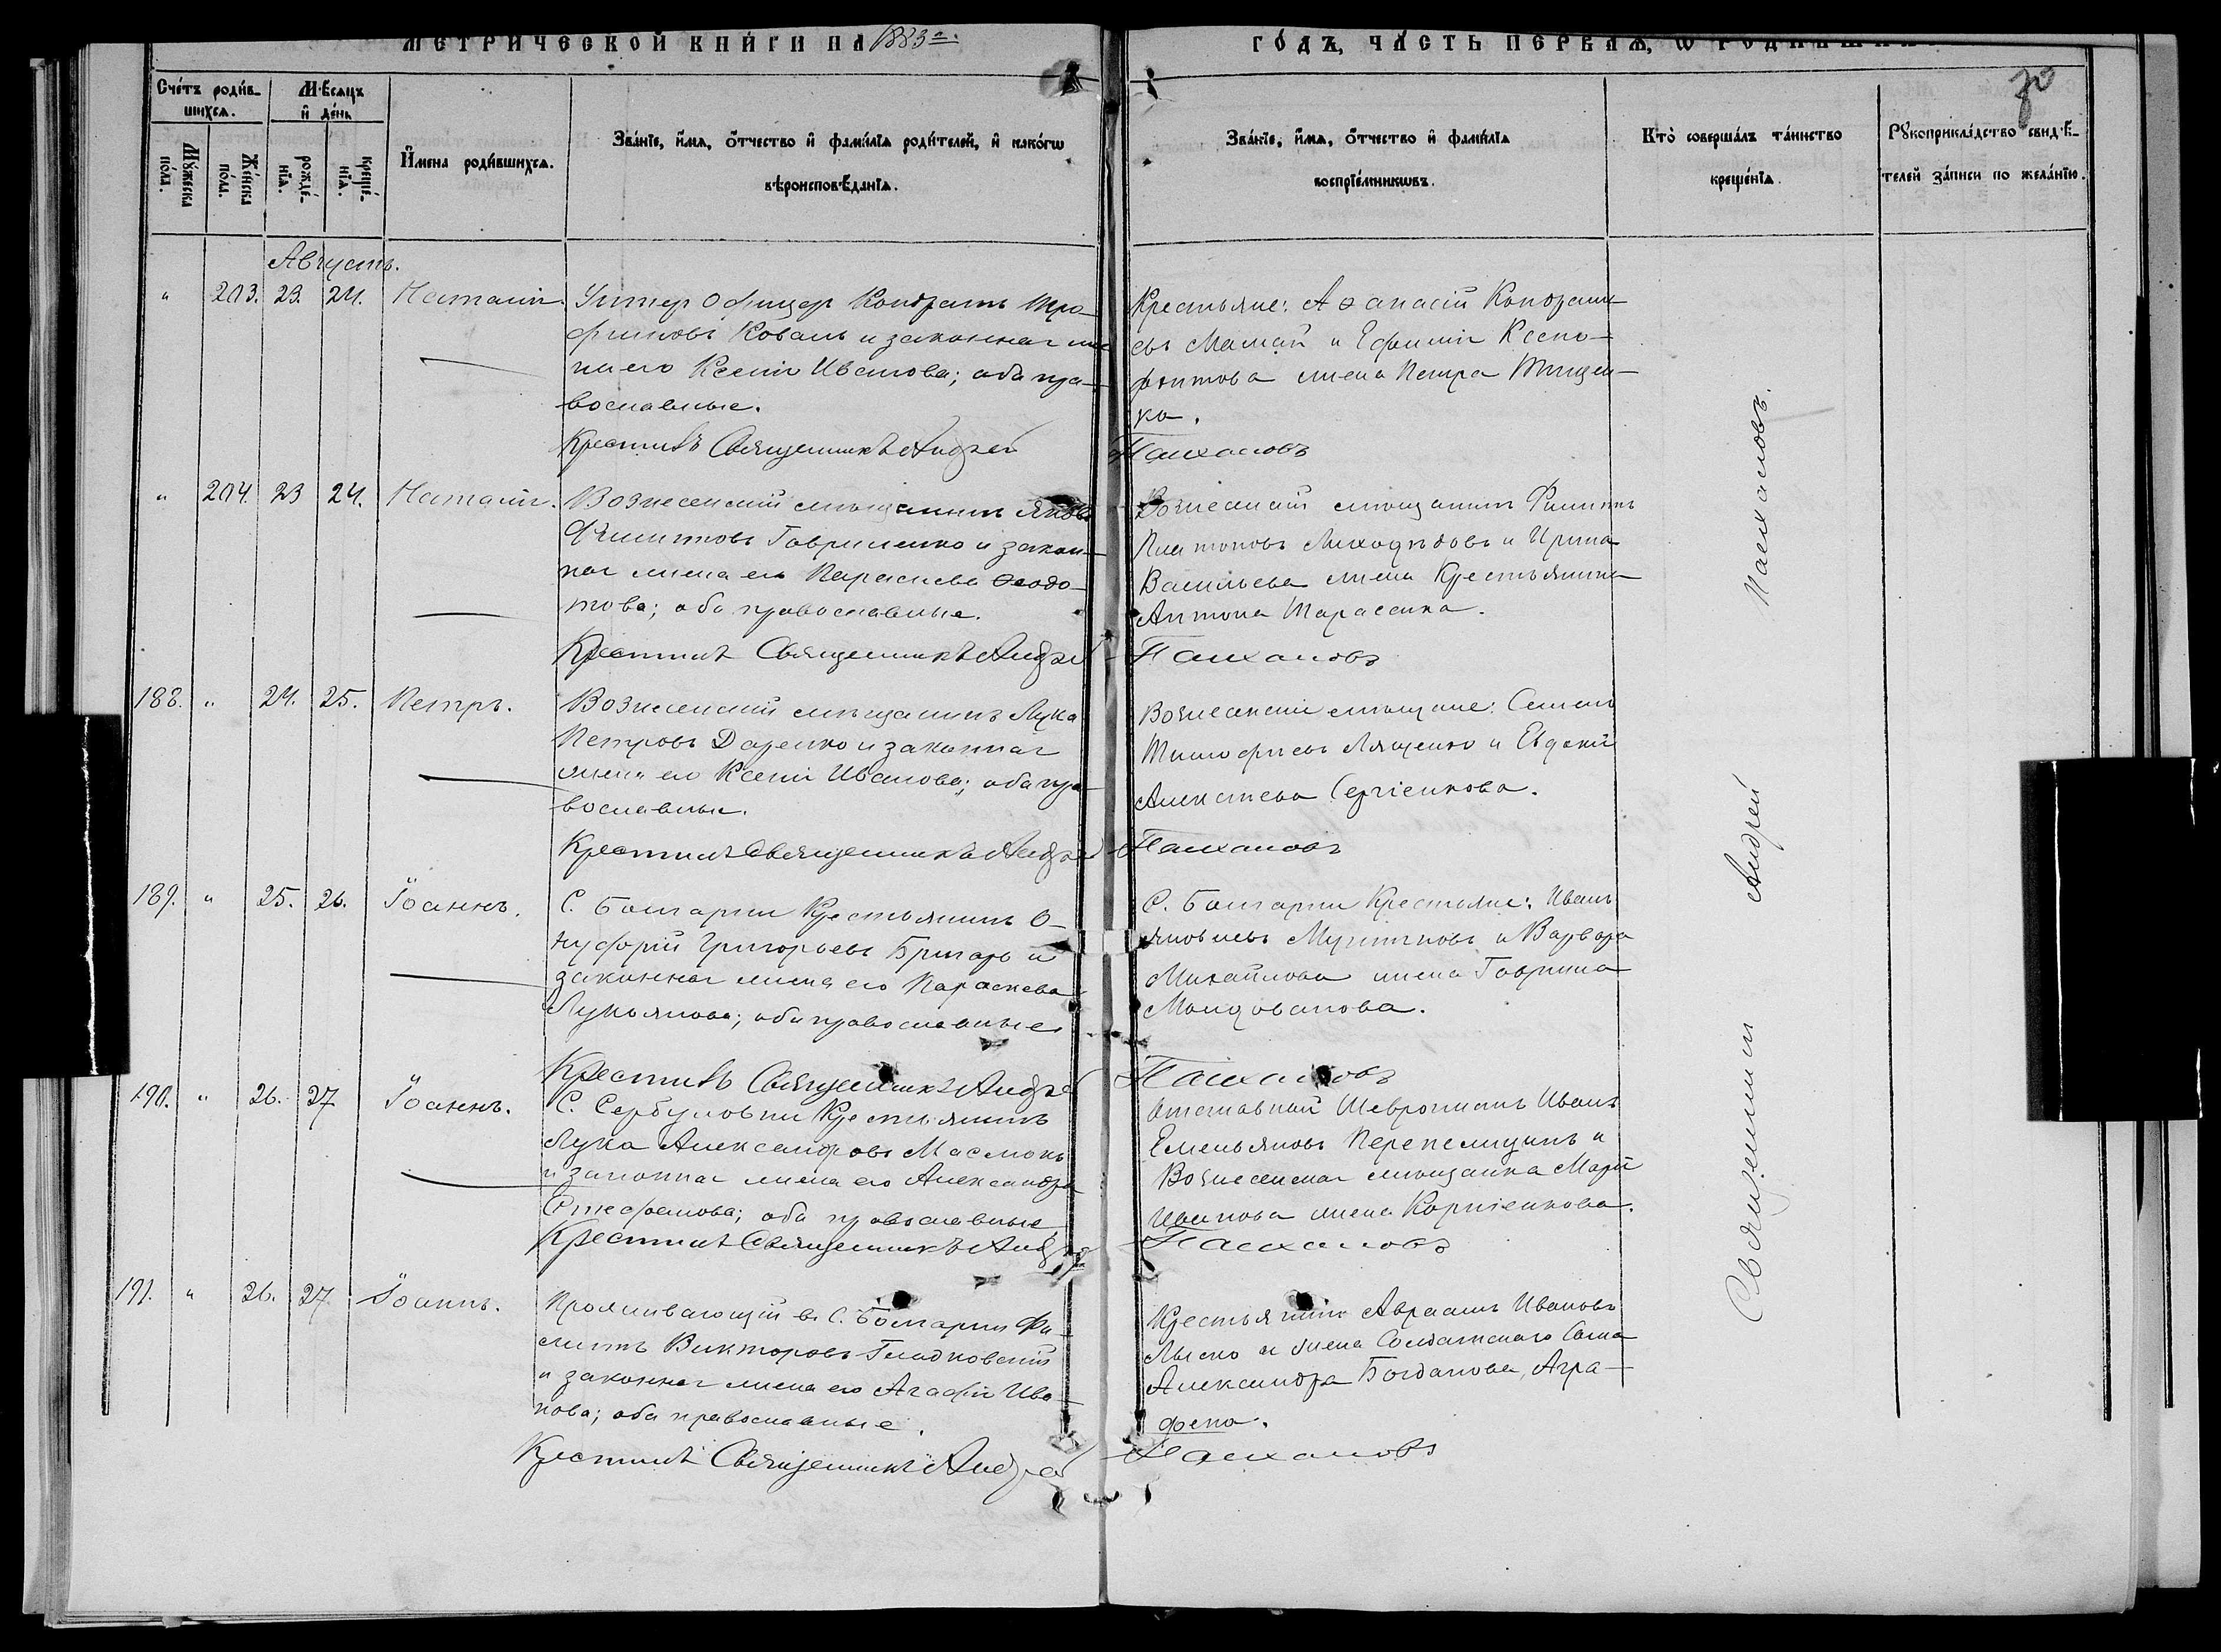 МЕТРИЧЕСКОЙ КНИГИ НА 1883 г.
ГОДЪ, ЧАСТЬ ПЕРВАЯ, Ѡ РОДИВШИХСЯ
Счетъ родившихся.
Мѣсяцъ и день
Имена родившихся.
Званіе, имя, отчество и фамилія родителей, и какогѡ
вѣроисповѣданія.
Званіе, имя, отчество и фамилія
воспріемникѡвъ.
Кто совершалъ таинство
крещенія.
Рукоприкладство свидѣ-
телей записи по желанію.
Мужеска пола.
Женска пола.
рожденія.
крещенія.
30
Августъ.
" 203. 23. 24. Наталія.
Унтеръ Офицеръ Кондратъ Тро-
фимовъ Коваль и законная же
на его Ксенія Иванова; оба пра-
вославные.
Крестилъ Священникъ Андрей Палхаловъ
Крестьяне: Аѳанасій Кондрать-
евъ Мамай и Ефимія Ксено-
фонтова жена Петра Тищен-
ка.
" 204. 23 24. Наталія.
Вознесенскій мѣщанинъ Яковъ
Филипповъ Гавриленко и закон-
ная жена его Параскева Ѳеодо-
това; оба православные.
Крестилъ Священникъ Андрей Палхаловъ
Вознесенскій мѣщанинъ Филиппъ
Платоновъ Лиходѣдовъ и Ирина
Васильева жена Крестьянина
Антона Тарасенка.
188. " 24. 25. Петръ.
Вознесенскій мѣщанинъ Лука
Петровъ Даренко и законная
жена его Ксенія Иванова; оба пра-
вославные.
Крестилъ Священникъ Андрей Палхаловъ
Вознесенскіе мѣщане: Семенъ
Тимофѣевъ Лященко и Евдокія
Алексѣева Сергіенкова.
189. " 25. 26. Іоаннъ.
С. Болгарки Крестьянинъ О-
нуфрій Григорьевъ Бригарь и
законная жена его Параскева
Лукьянова; оба православные
Крестилъ Священникъ Андрей Палхаловъ
С. Болгарки Крестьяне: Иванъ
Яковлевъ и Варвара
Михайлова жена Гаврила
Молдованова.
190. " 26. 27 Іоаннъ.
С. Сербуловки Крестьянинъ
Лука Александровъ Маслюкъ
и законная жена его Александра
Стефанова; оба православные
Крестилъ Священникъ Андрей Палхаловъ
Отставной Иванъ
Емельяновъ Перепелицынъ и
Вознесенская мѣщанка Марія
Иванова жена Корніенкова.
191. " 26. 27. Іоаннъ.
Проживающій въ С. Болгарки Фи-
липпъ Викторовъ Гладковскій
и законная жена его Агафія Ива-
нова; оба православные.
Крестилъ Священникъ Андрей Палхаловъ
Крестьянинъ Авраамъ Ивановъ
Лыско и жена Солдатскаго Сына
Александра Богданова, Агра-
фена.
Священникъ Андрей Палхаловъ.